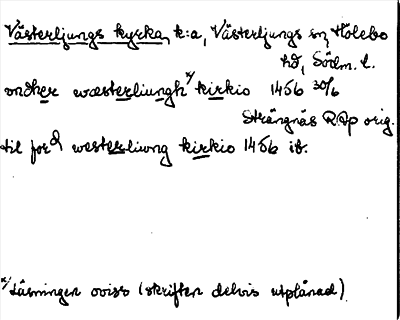 Västerljungs kyrka, k:a, Västerljungs sn, Hölebo
hd, Södm. l.
ondher wæsterliungh x) kirkio 1456 30/6
Strängnäs RAp orig.
til ford westerliwng kirkio 1456 ib.
x) Läsningen oviss (skriften delvis utplånad)